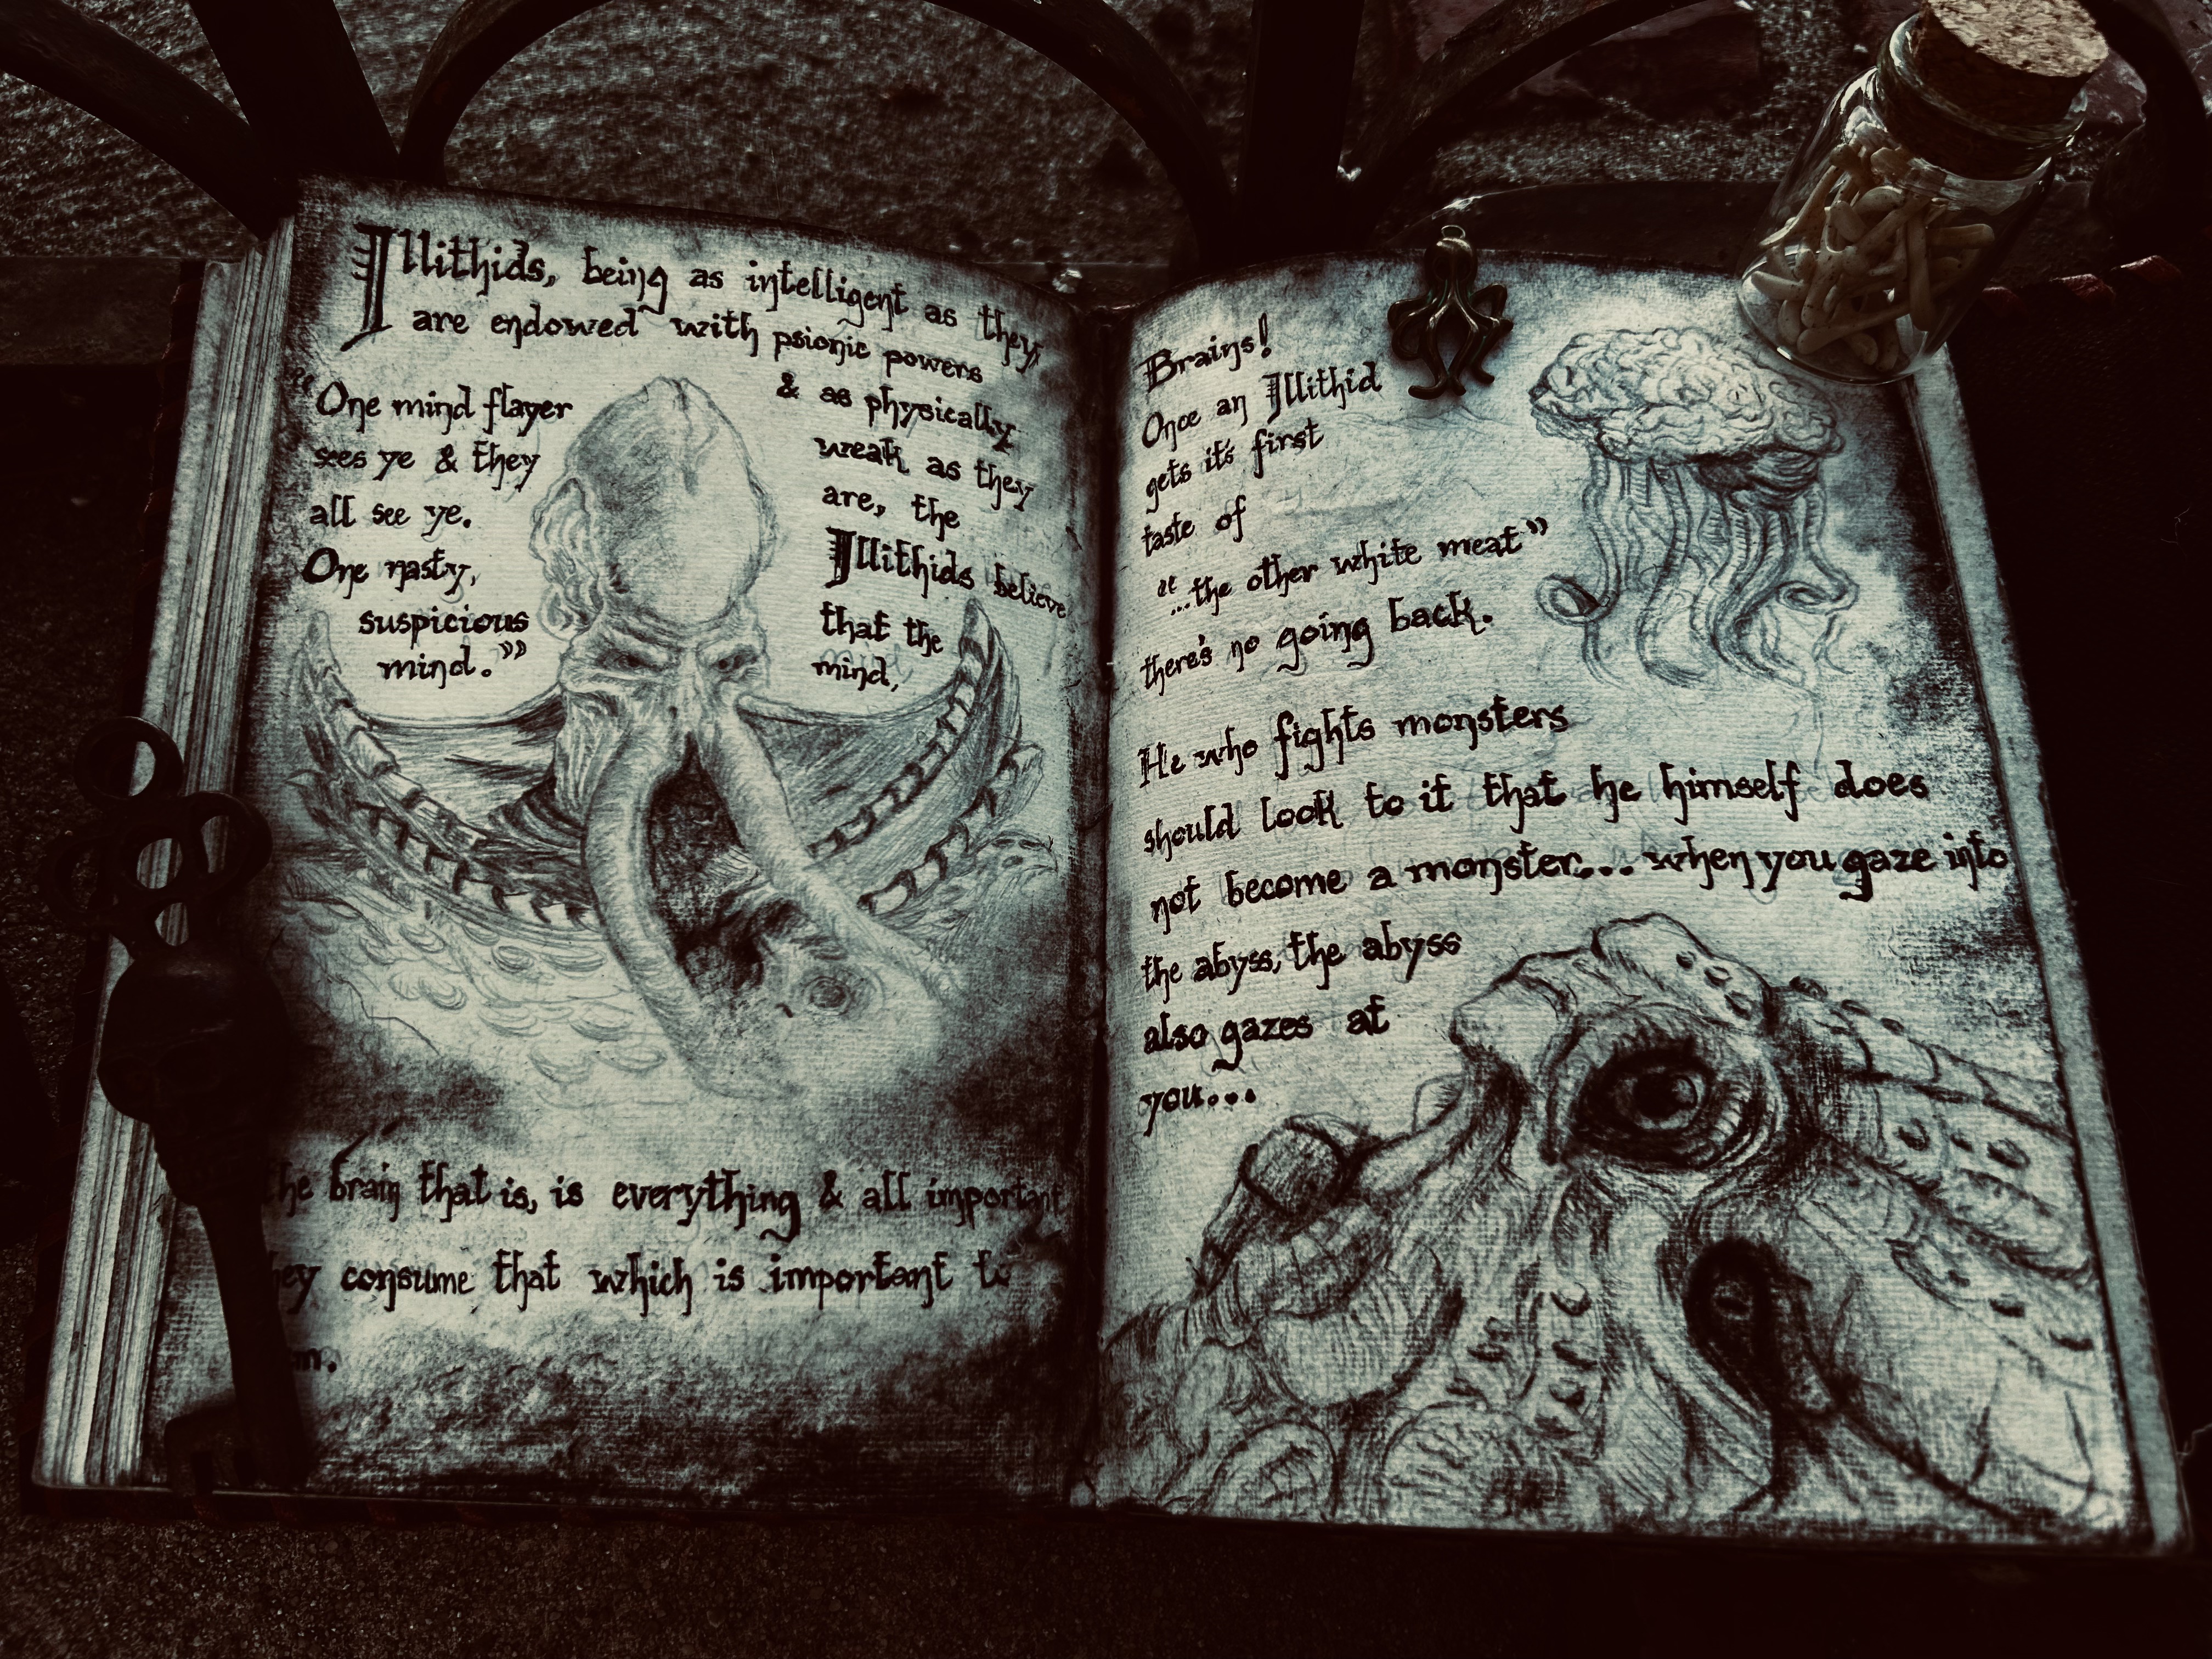 Illithids, being as intelligent as they,
are endowed with psionic powers
& as physically
weak as they
are, the
Illithids believe
that the
mind,
"One mind flayer
sees ye & they
all see ye.
One nasty,
suspicious
mind."
the brain that is, is everything & all important
consume that which is important to
Brains!
Once an Illithid
gets it's first
taste of
"...the other white meat"
there's no going back.
He who fights monsters
should look to it that he himself does
not become a monster... when you gaze into
the abyss, the abyss
also gazes at
you...